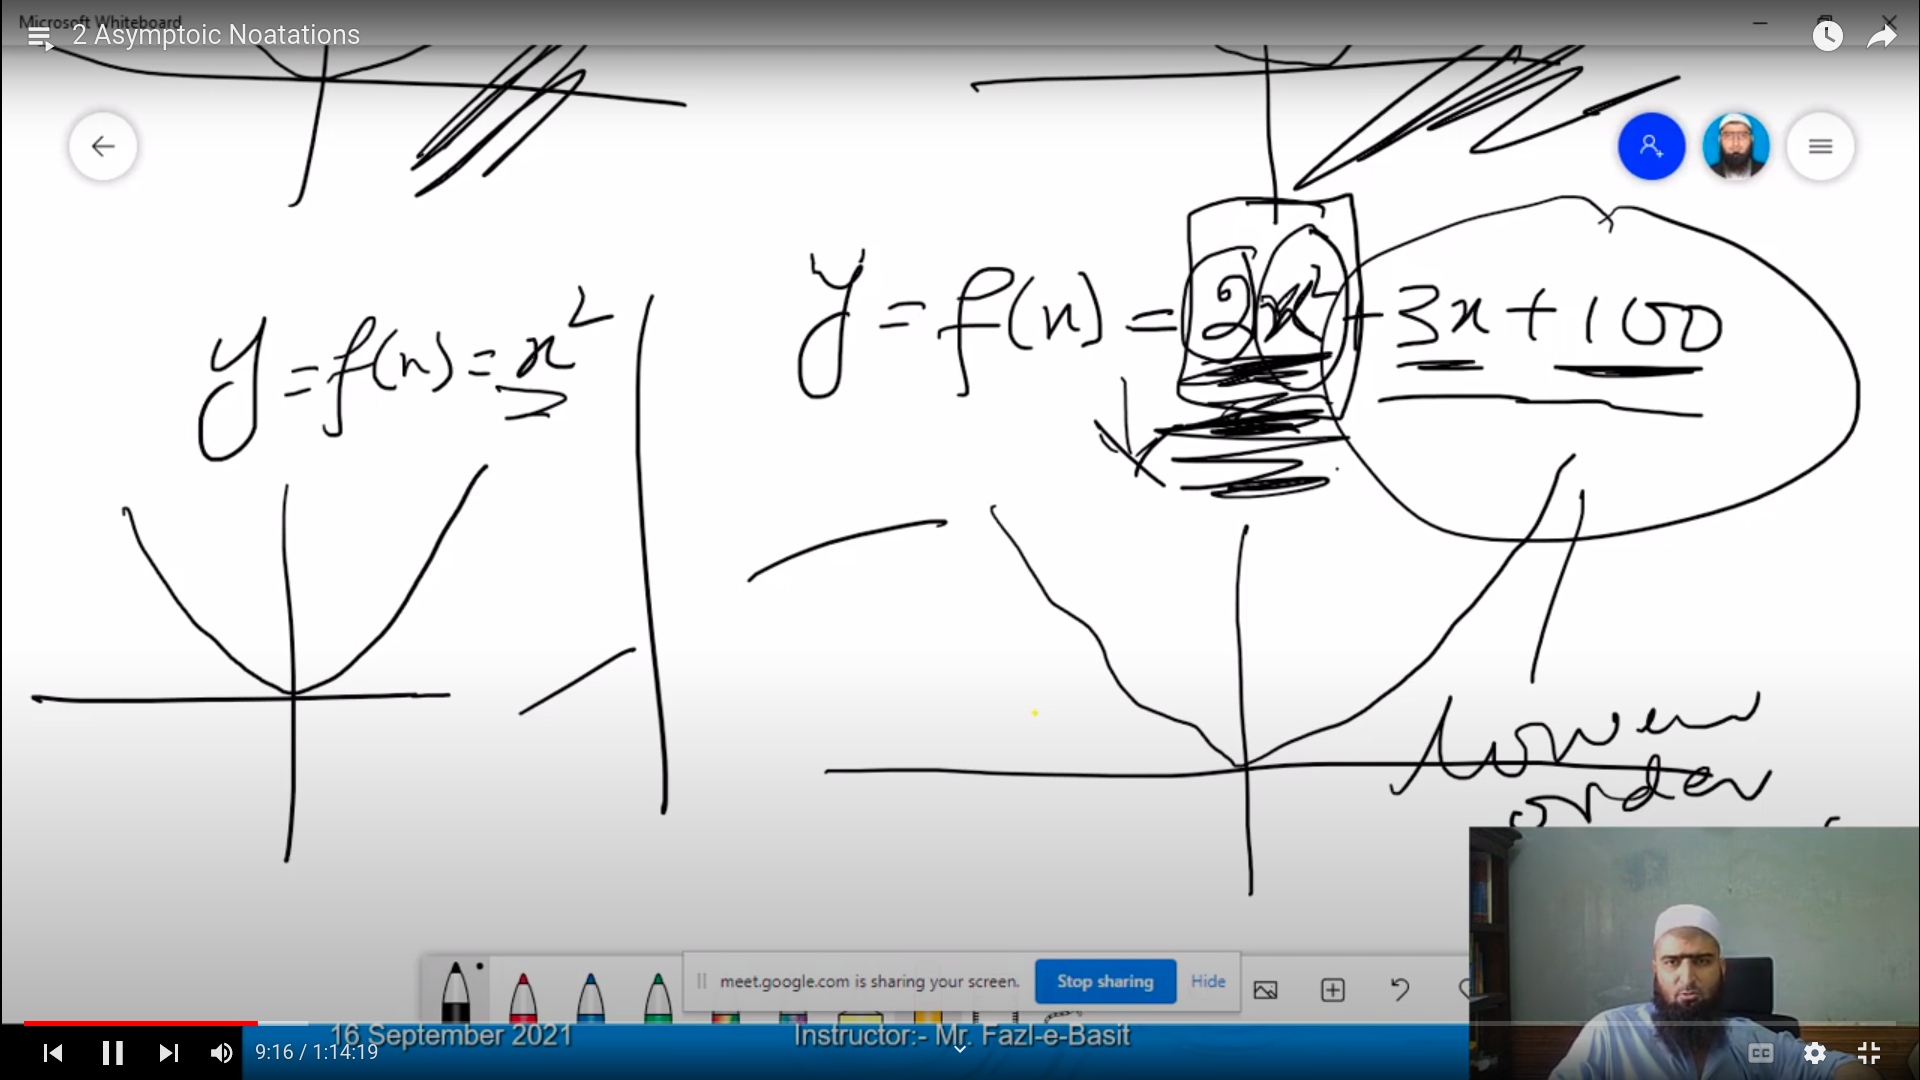 Microsoft Whiteboard
2 Asymptoic Noatations
y = f(n) = x²
y = f(n) = 2x² + 3x + 100
lower
order
meet.google.com is sharing your screen.
Stop sharing
Hide
16 September 2021
Instructor:- Mr. Fazl-e-Basit
9:16 / 1:14:19
CC